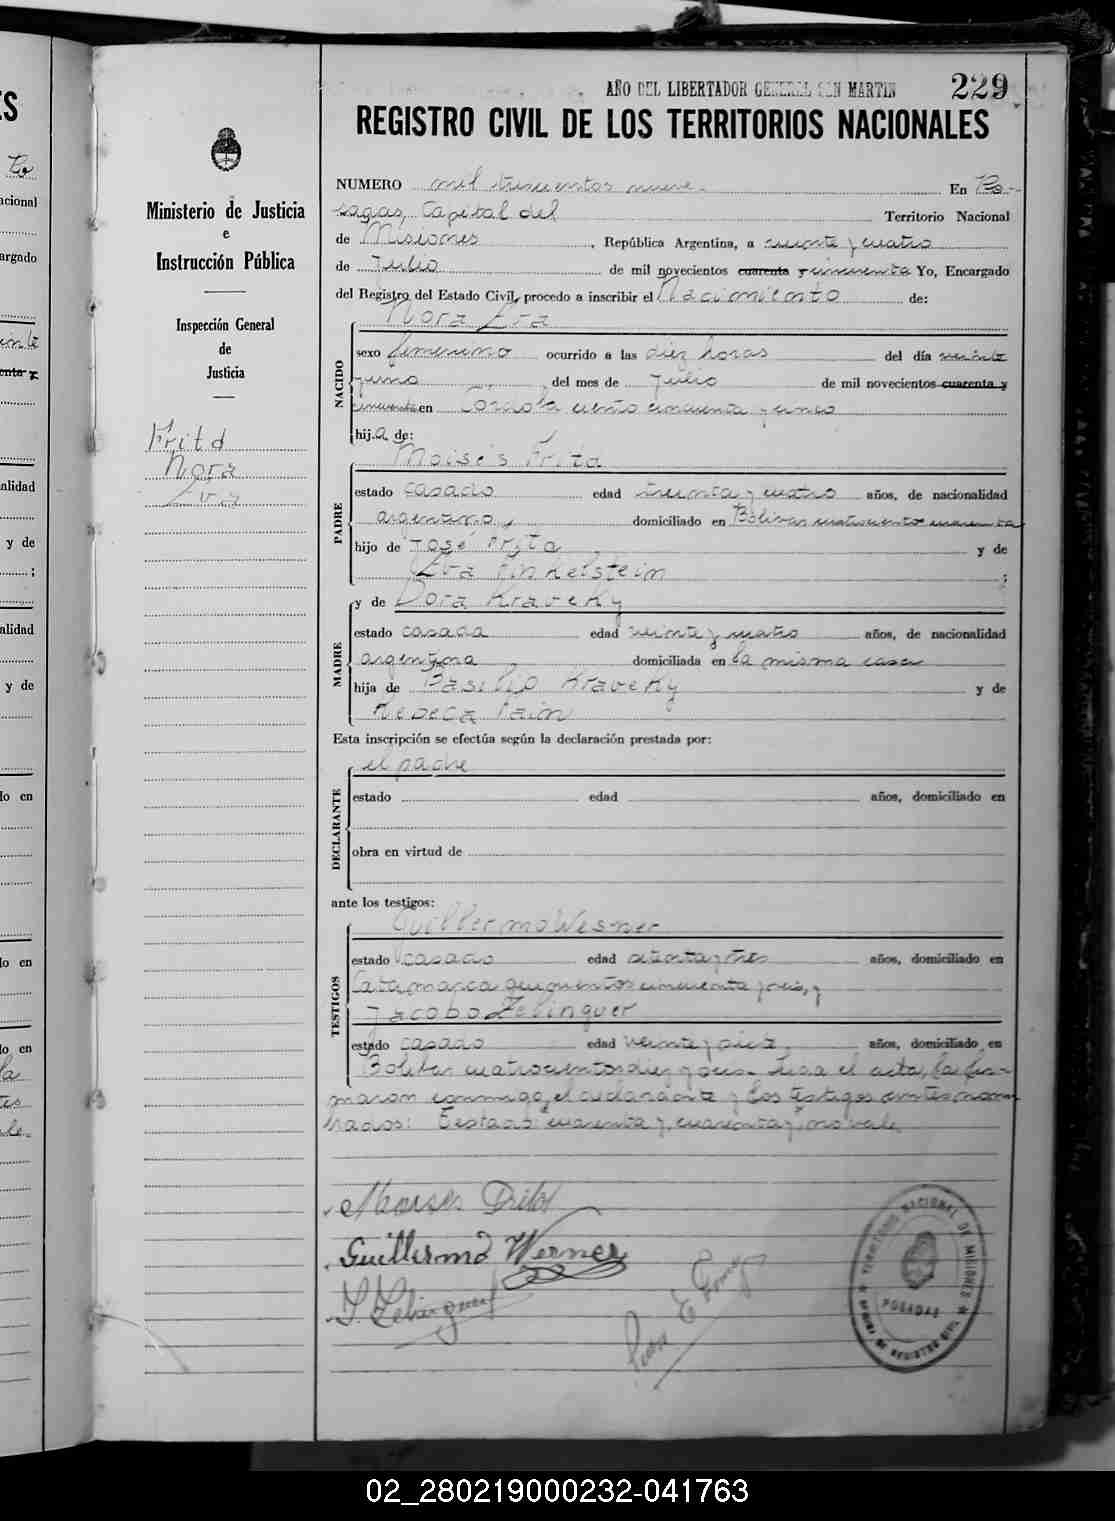 AÑO DEL LIBERTADOR GENERAL SAN MARTIN 229
REGISTRO CIVIL DE LOS TERRITORIOS NACIONALES
Ministerio de Justicia
e
Instrucción Pública
Inspección General
de
Justicia
Fritd
Nora
Eva
NUMERO mil trescientos nueve.- En Po-
sadas, Capital del Territorio Nacional
de Misiones, República Argentina, a veinte y cuatro
de Julio de mil novecientos cuarenta y cincuenta Yo, Encargado
del Registro del Estado Civil, procedo a inscribir el Nacimiento de:
NACIDO
Nora Eva
sexo femenino ocurrido a las diez horas del día veinte
y uno del mes de Julio de mil novecientos cuarenta y
cincuenta en Córdoba ciento cincuenta y cinco
hija de:
PADRE
Moisés Fritd
estado casado edad treinta y cuatro años, de nacionalidad
argentino, domiciliado en Bolivar cuatrocientos cuarenta
hijo de José Fritd y de
Eva Finkelstein ;
MADRE
y de Dora Kraveky
estado casada edad veinte y cuatro años, de nacionalidad
argentina domiciliada en la misma casa
hija de Basilio Kraveky y de
Rebeca Pain
Esta inscripción se efectúa según la declaración prestada por:
DECLARANTE
el padre
estado edad años, domiciliado en
obra en virtud de
ante los testigos:
TESTIGOS
Guillermo Werner
estado casado edad setenta y tres años, domiciliado en
Catamarca quinientos cincuenta y seis, y
Jacobo Zelinguer
estado casado edad veinte y siete, años, domiciliado en
Bolivar cuatrocientos diez y seis.- Leida el acta, la fir-
maron conmigo, el declarante y los testigos antes nom-
brados: Testado: cuarenta y, cuarenta y, no vale.
Moises Fritd
Guillermo Werner
J. Zelinguer
TERRITORIO NACIONAL DE MISIONES
POSADAS
02_280219000232-041763